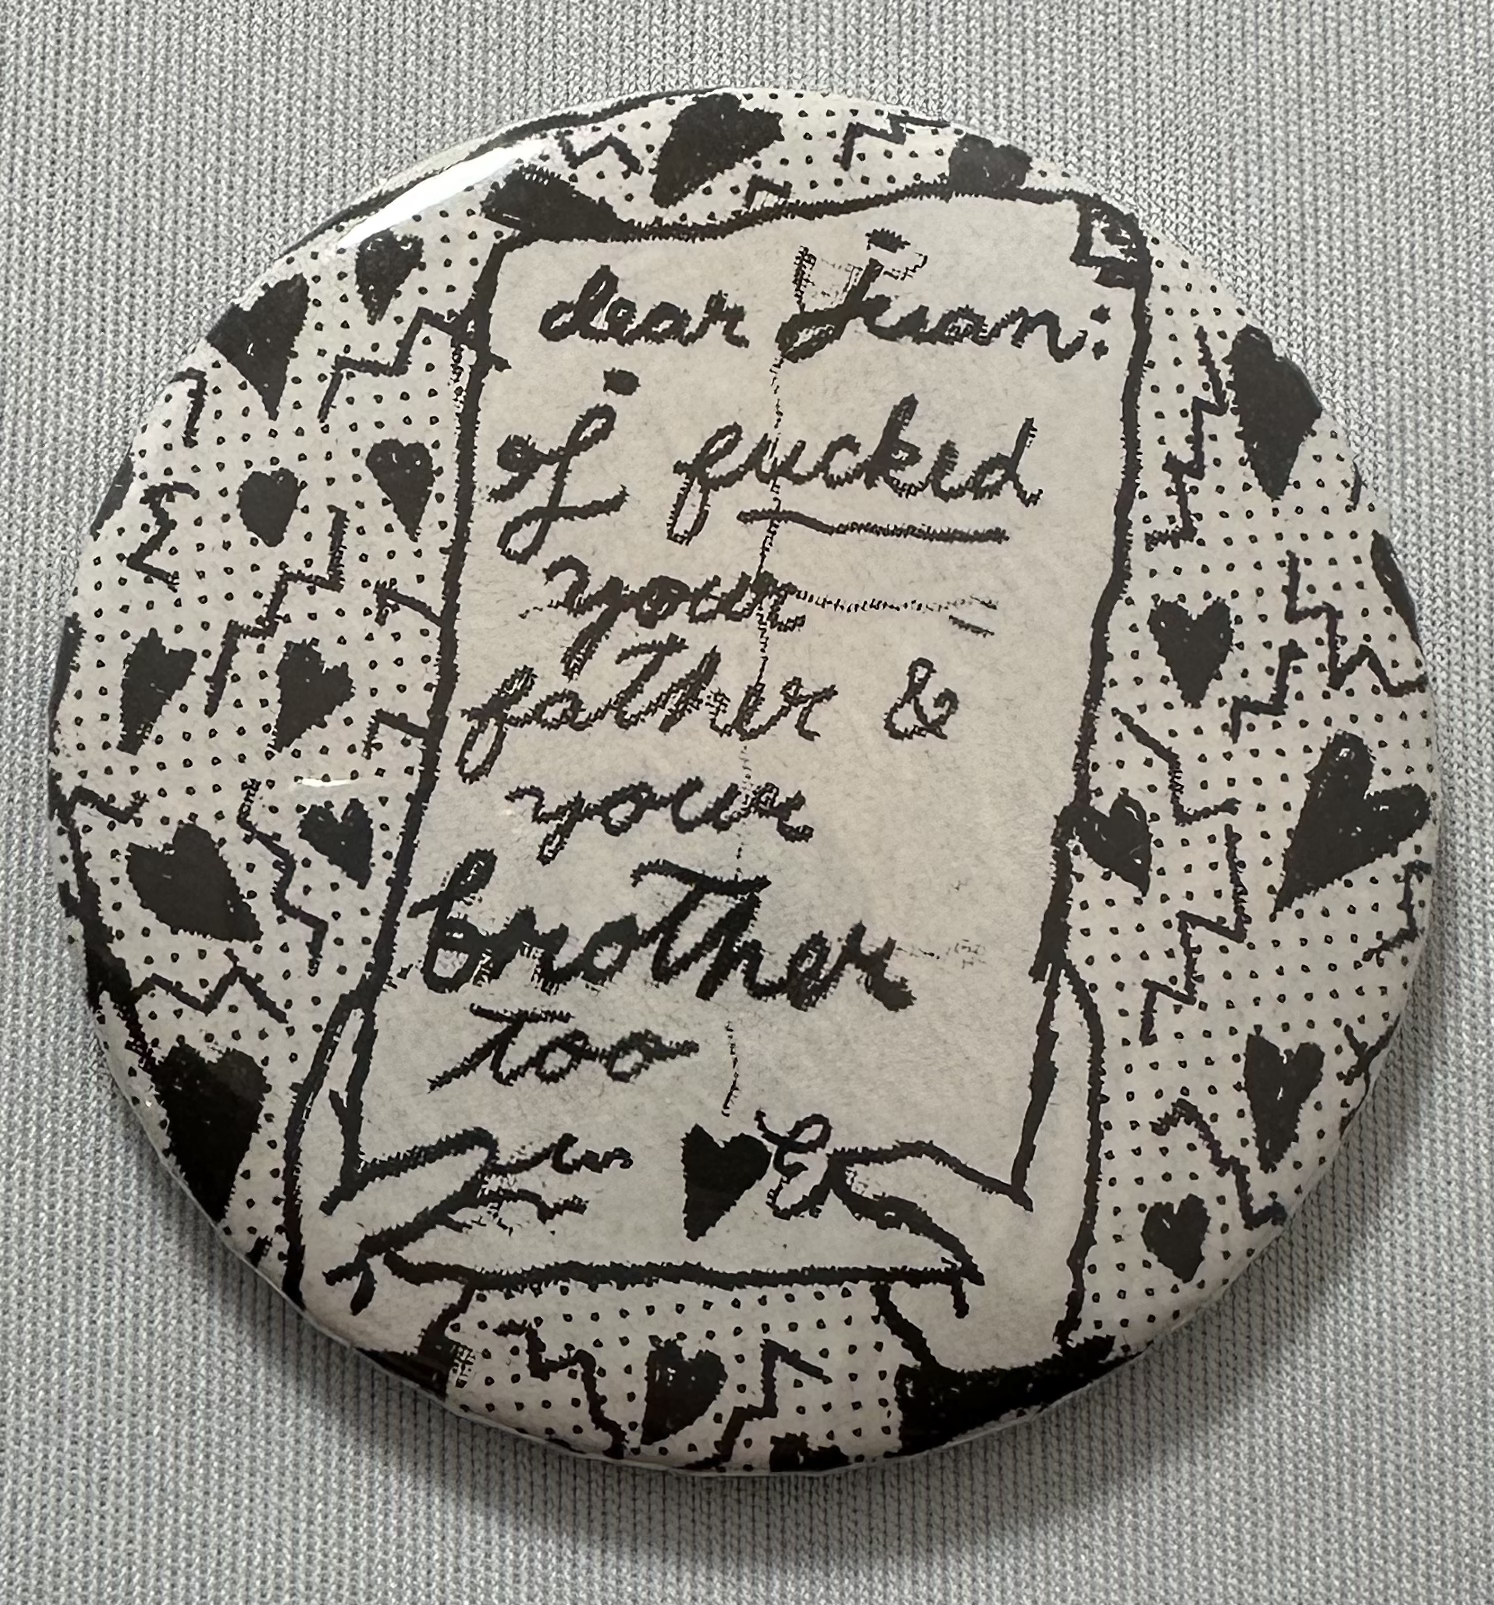 dear Jivan:
I fucked
your
father &
your
brother
too
♥ E